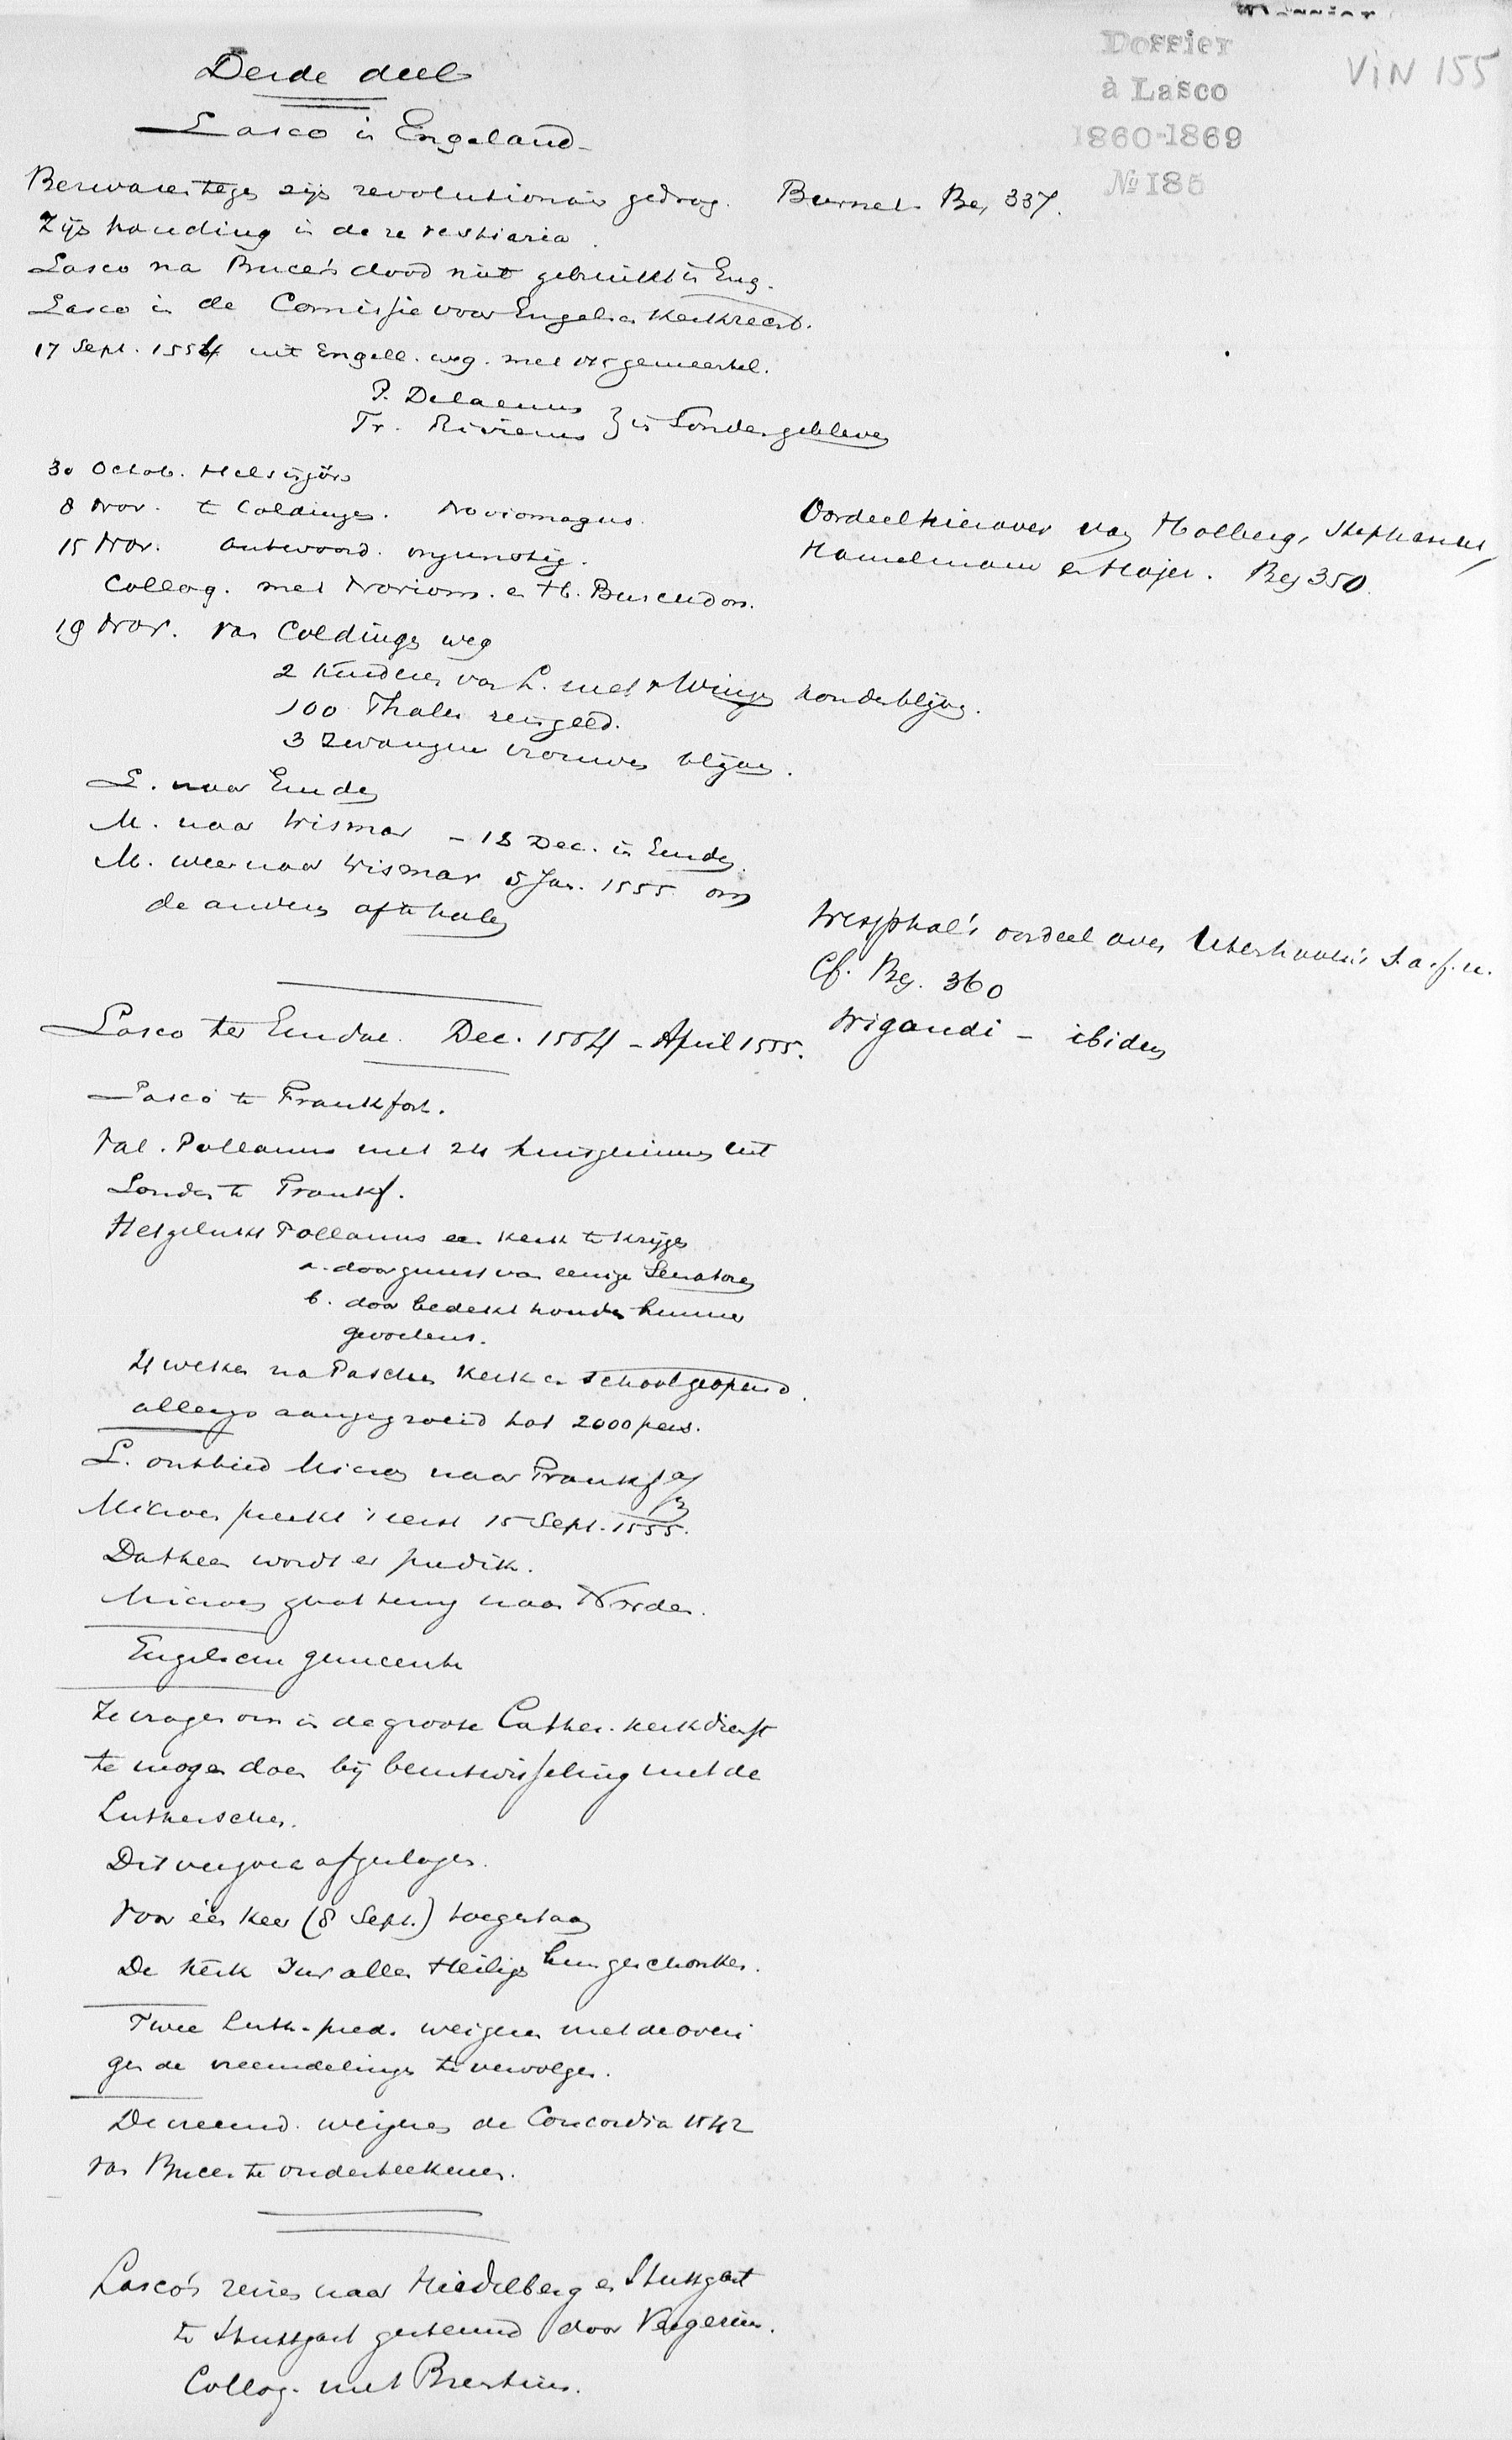 Dossier
à Lasco
1860-1869
No 185
VIN 155
Derde deel
Lasco in Engeland
Bezwaren tegen zijn revolutionair gedrag. Burnet. Bes 337.
Zijn houding in de re vestiaria.
Lasco na Bucer's dood niet gebruikt in Eng.
Lasco in de Comissie voor Engelsch Kerkrecht.
17 Sept. 1554 uit Engell. weg. met 175 gemeentel.
P. Delaenus
Fr. Rivierus } in Londen gebleven
30 Octob. Helsingörs
8 Nov. te Coldingen. Noviomagus.
15 Nov. Antwoord. ongunstig.
Colloq. met Noviom. en H. Buscudon.
Oordeel hierover van Holberg, Stephanus,
Hamelmann en Mojer. Bes 350.
19 Nov. van Coldingen weg
2 Kinderen van L. met v Wingen konden blijven.
100 Thaler reisgeld.
3 zwangere vrouwen blijven.
L. naar Emden
M. naar Wismar – 18 Dec. in Emden.
M. weer naar Wismar 5 Jan. 1555 om
de anderen af te halen
Westphal's oordeel over Utenhoven's S.a.f.n.
Cf. Bes. 360
Wigandi – ibidem
Lasco ter Emdae. Dec. 1554 – April 1555.
Lasco te Frankfort.
Val. Pollanus met 24 huisgezinnen uit
Londen te Frankf.
Het gelukt Pollanus een kerk te krijgen
a. door gunst van eenige Senatoren
b. door bedekt houden hunner
gevoelens.
4 weken na Paschen Kerk en school geopend.
allengs aangegroeid tot 2000 pers.
L. ontbied Micron naar Frankf a/m
Micron preekt 't eerst 15 Sept. 1555.
Datheen wordt er predik.
Micron gaat terug naar Norden.
Engelsche gemeente
Ze vragen om in de groote Luther. kerk dienst
te mogen doen bij beurtwisseling met de
Lutherschen.
Dit verzoek afgeslagen.
Voor één keer (8 Sept.) toegestaan
De Kerk Zur allen Heiligen hun geschonken.
Twee Luth. pred. weigeren met de overi
gen de vreemdelingen te vervolgen.
De vreemd. weigeren de Concordia 1542
van Bucer te onderteekenen.
Lasco's reizen naar Heidelberg en Stuttgart
te Stuttgart gesteund door Vergerius.
Colloq. met Brentius.